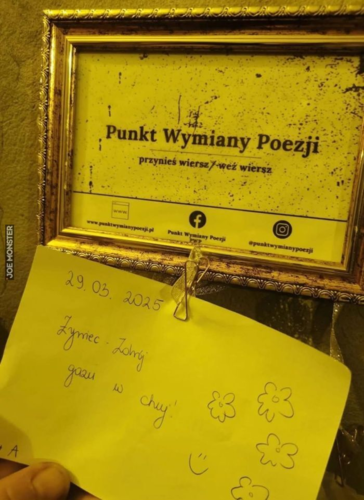 Punkt Wymiany Poezji
przynieś wiersz / weź wiersz
www.punktwymianypoezji.pl
Punkt Wymiany Poezji
@punktwymianypoezji
29.03.2025
Żywiec - Zdrój
gazu w chuj!
A
JOE MONSTER